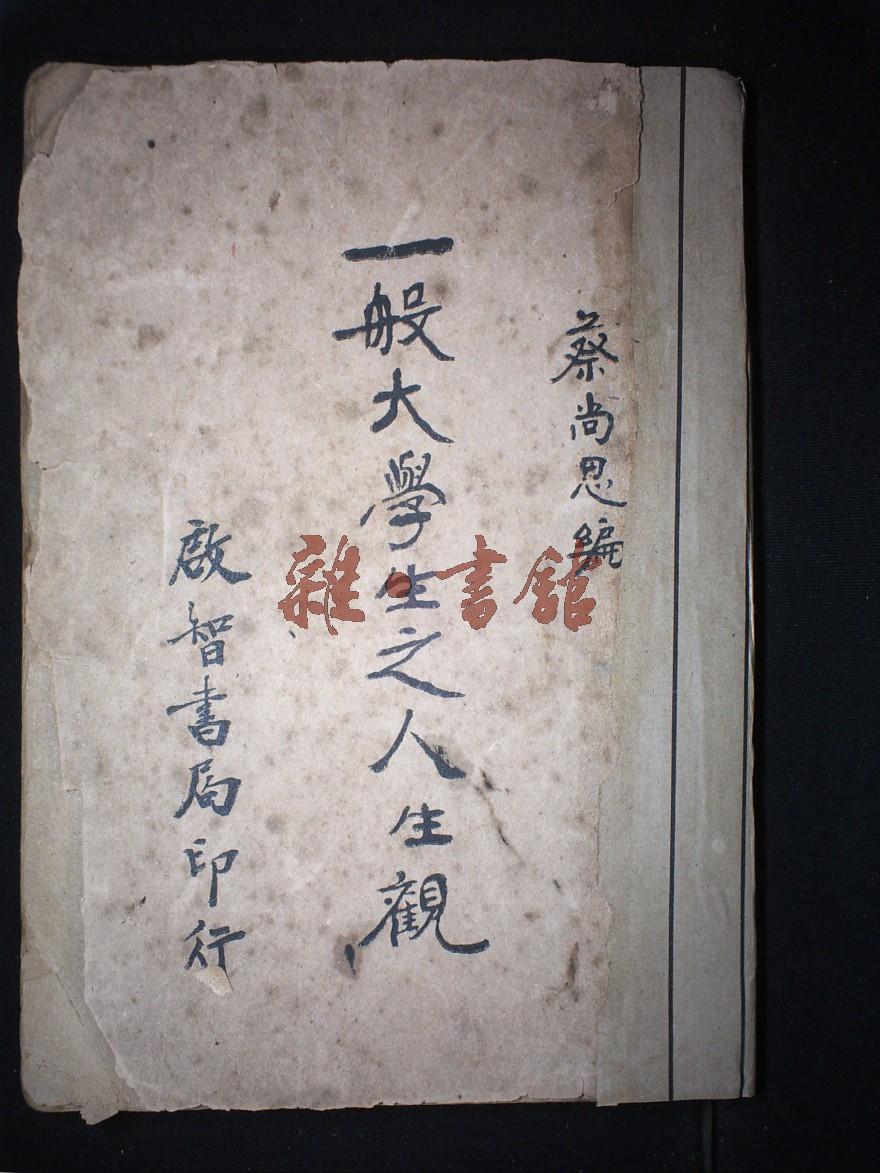 蔡尚思編
一般大學生之人生觀
啟智書局印行
雜·書館